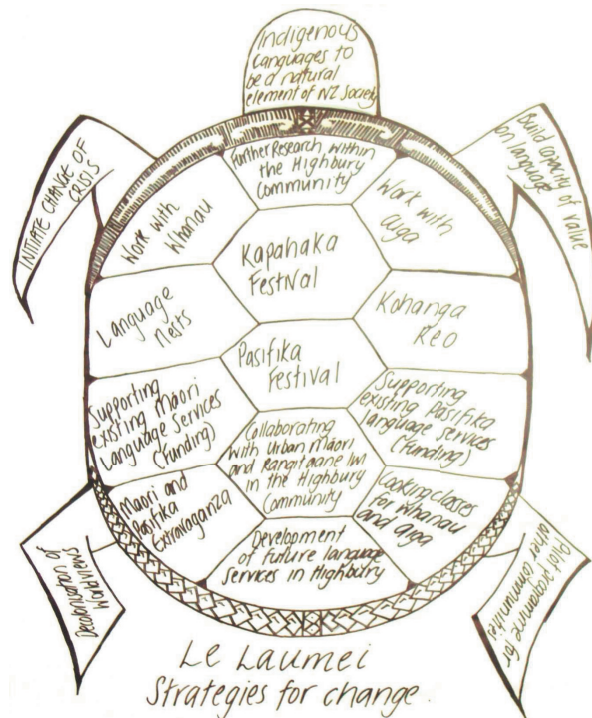 Indigenous
Languages to
be a natural
element of NZ Society
INITIATE CHANGE OF
CRISIS
Build capacity of value
on language
Further Research within
the Highbury
Community
Work with
Whanau
Work with
aiga
Kapahaka
Festival
Language
Nests
Kohanga
Reo
Pasifika
Festival
Supporting
existing Māori
Language Services
(Funding)
Supporting
existing Pasifika
language services
(Funding)
Collaborating
with Urban Māori
and Rangitaane Iwi
in the Highbury
Community
Maori and
Pasifika
Extravaganza
Cooking classes
for Whanau
and aiga
Development
of future language
services in Highbury
Decolonisation of
Worldviews
programme for
other communities
Le Laumei
Strategies for change.